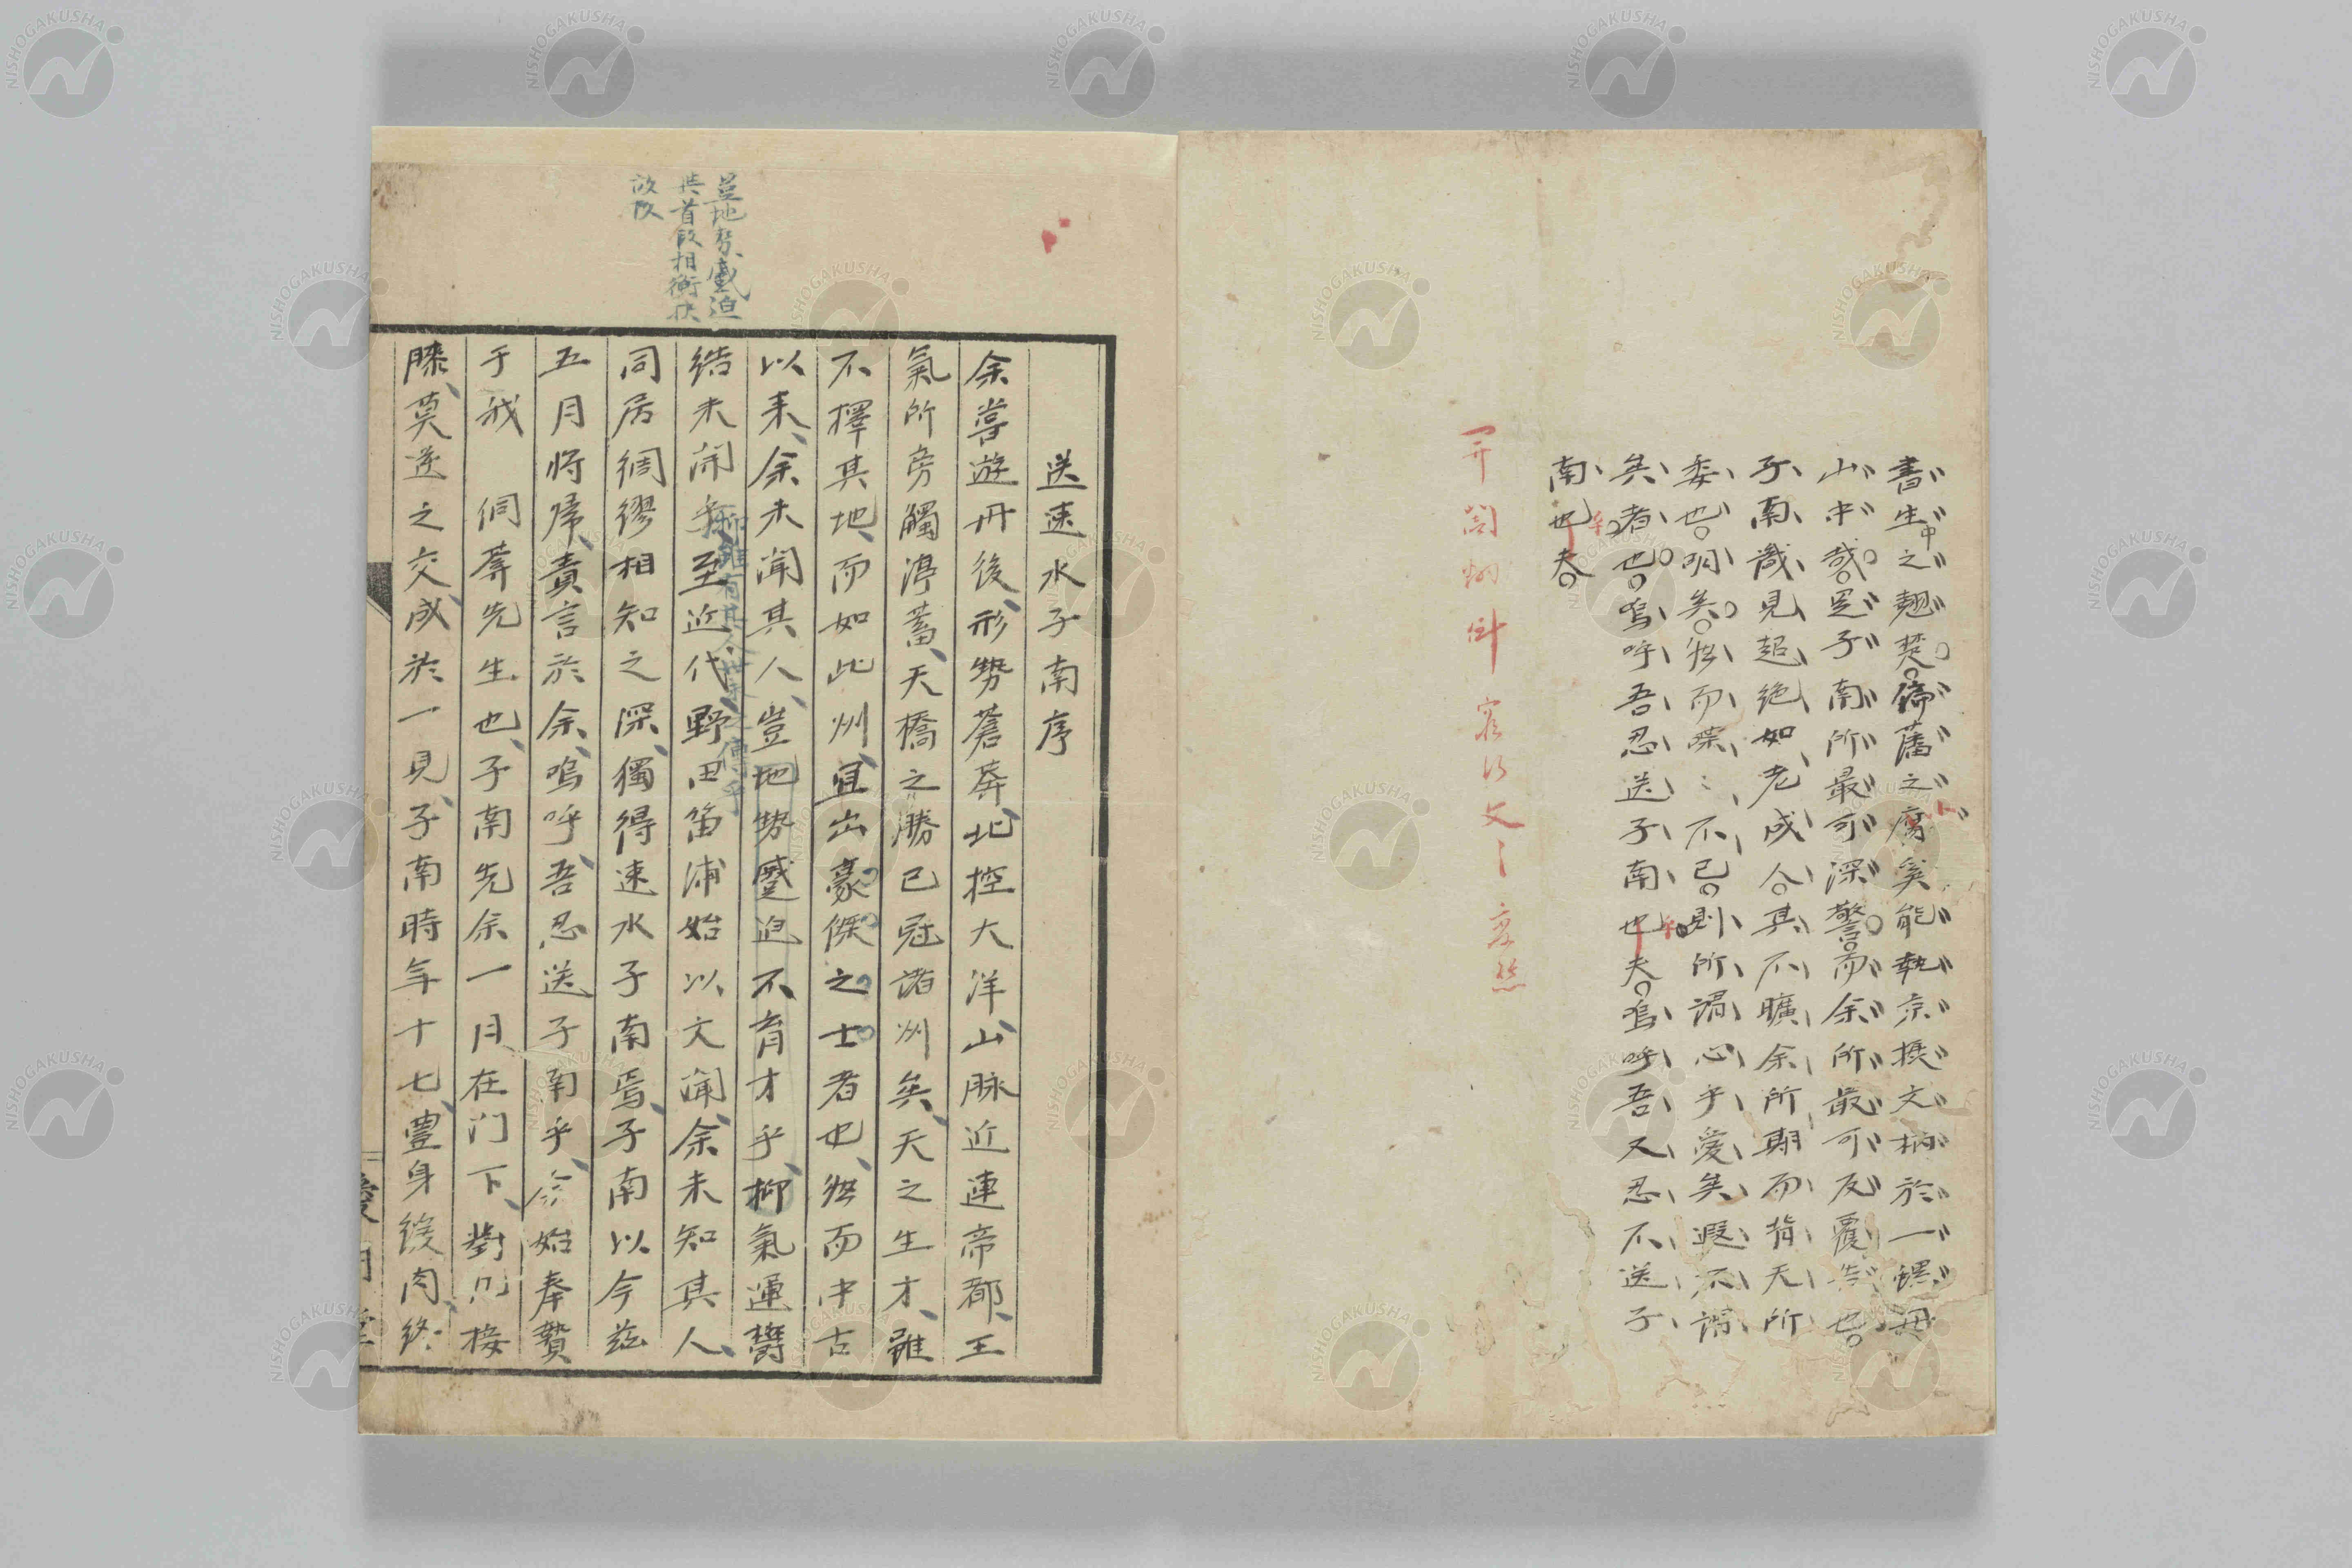 書生中之翹楚。儒藩之腐奚能執京摂文柄於一鰥
山中哉。是子南所最可深警。而余所最可反覆告也。
子南識見超絶如老成人。其不曠余所期而背天所
委也。明矣。然而喋々不已。則所謂心乎愛矣遐不謂
矣者也。嗚呼吾忍送子南也夫。嗚呼吾又忍不送子
南也夫。
送速水子南序
余嘗遊丹後、形勢蒼莽、北控大洋、山脉近連帝都、王
氣所旁觸渟蓄、天橋之勝已冠諸州矣、天之生才、雖
不擇其地、而如此州、宜出豪傑之士者也、然而中古
以来、余未聞其人、豈地勢蹙迫不育才乎、抑氣運欝
結未開乎、至近代、野田笛浦始以文聞、余未知其人、
同居綢繆相知之深、獨得速水子南焉、子南以今茲
五月将帰、責言於余、嗚呼、吾忍送子南乎、余始奉贄
于我 侗菴先生也、子南先余一月在门下、對几接
膝、莫逆之交、成於一見、子南時年十七、豊身緩肉、終
豈地勢蹙迫
共首段相衝决
故改
抑雖有其人世未之傳乎
NISHOGAKUSHA